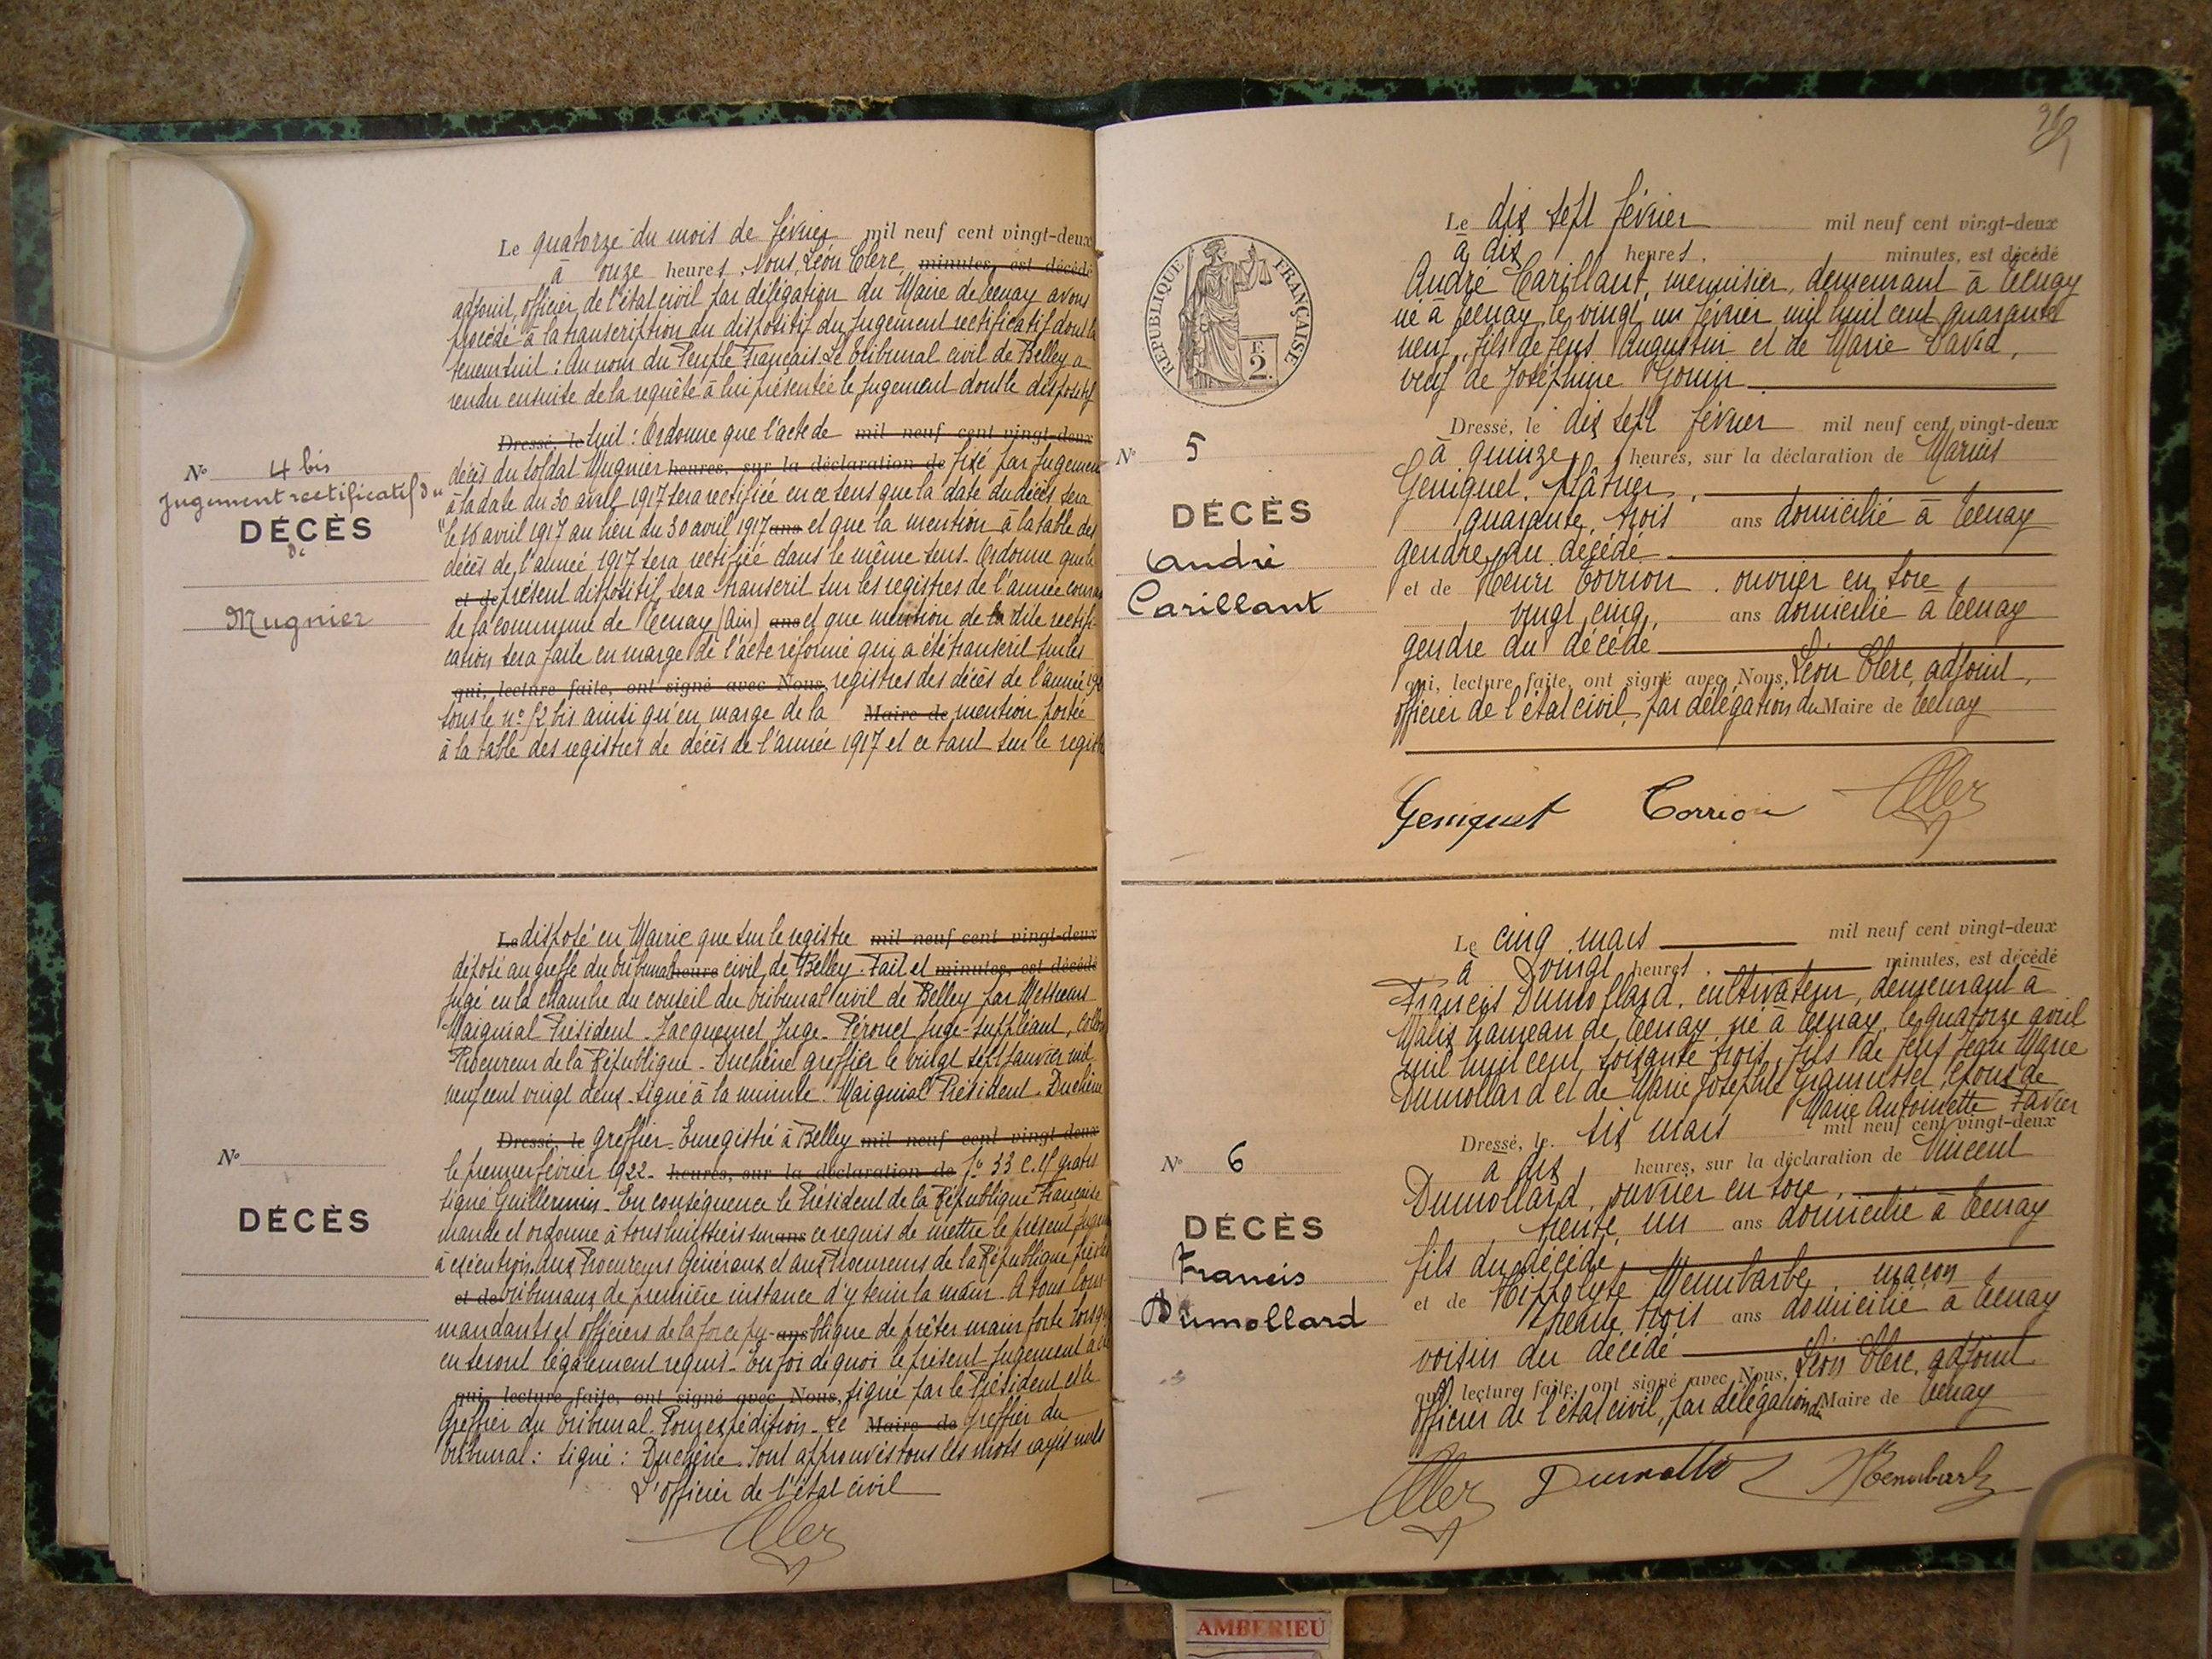 Le quatorze du mois de février mil neuf cent vingt-deux
à onze heures, Nous, Léon Clerc, minutes, est décédé
adjoint, officier de l'état civil par délégation du Maire de Tenay avons
procédé à la transcription du dispositif du jugement rectificatif dont la
teneur suit : Au nom du Peuple Français. Le Tribunal civil de Belley a
rendu ensuite de la requête à lui présentée le jugement dont le dispositif
Dressé, le suit : Ordonne que l'acte de mil neuf cent vingt-deux
décès du soldat Mugnier heures, sur la déclaration de fixé par jugement
à la date du 30 avril 1917 sera rectifiée en ce sens que la date du décès sera
"le 16 avril 1917 au lieu du 30 avril 1917 ans et que la mention à la table des
décès de l'année 1917 sera rectifiée dans le même sens - Ordonne que le
et de présent dispositif sera transcrit sur les registres de l'année
de la commune de Tenay (Ain) ans et que mention de la dite rectifi-
cation sera faite en marge de l'acte réformé qui a été transcrit sur les
qui, lecture faite, ont signé avec Nous, registres des décès de l'année
sous le n° 12 bis ainsi qu'en marge de la Maire de mention portée
à la table des registres de décès de l'année 1917 et ce tant sur le
N° 4 bis
Jugement rectificatif du
DÉCÈS
De
Mugnier
Le disposé en Mairie que sur le registre mil neuf cent vingt-deux
déposé au greffe du tribunal heure civil de Belley. Fait et minutes, est décédé
jugé en la chambre du conseil du tribunal civil de Belley par Messieurs
Maignial Président - Jacquemet Juge - Pérouet Juge-suppléant,
Procureur de la République - Duchêne greffier le vingt sept janvier mil
neuf cent vingt deux - signé à la minute : Maignial Président - Duchêne
Dressé, le greffier - Enregistré à Belley mil neuf cent vingt-deux
le premier février 1922 - heures, sur la déclaration de f° 33 c. gratis
signé Guillermin - En conséquence le Président de la République Française
mande et ordonne à tous huissiers sur ans ce requis de mettre le présent
à exécution. Aux Procureurs Généraux et aux Procureurs de la République près les
et de tribunaux de première instance d'y tenir la main. A tous
mandants et officiers de la force pu- ans blique de prêter main forte
en seront légalement requis - En foi de quoi le présent jugement a été
qui, lecture faite, ont signé avec Nous, signé par le Président et le
Greffier du tribunal. Pour expédition - Le Maire de Greffier du
tribunal : signé : Duchêne. Sont approuvés tous les mots rayés nuls
L'officier de l'état civil
N°
DÉCÈS
Le dix sept février mil neuf cent vingt-deux
à dix heures, minutes, est décédé
André Carillant, menuisier, demeurant à Tenay
né à Tenay le vingt un février mil huit cent quarante
neuf, fils de feus Augustin et de Marie David,
veuf de Joséphine Gonin
Dressé, le dix sept février mil neuf cent vingt-deux
à quinze heures, sur la déclaration de Marius
Geniquet, plâtrier,
quarante trois ans domicilié à Tenay
gendre du décédé
et de Henri Corrion, ouvrier en soie,
vingt cinq, ans domicilié à Tenay
gendre du décédé
qui, lecture faite, ont signé avec Nous, Léon Clerc, adjoint,
officier de l'état civil par délégation du Maire de Tenay
REPUBLIQUE FRANÇAISE
2 F.
N° 5
DÉCÈS
André
Carillant
Geniquet Corrion Clerc
Le cinq mars mil neuf cent vingt-deux
à vingt heures, minutes, est décédé
Francis Dumollard, cultivateur, demeurant à
Malix hameau de Tenay, né à Tenay, le quatorze avril
mil huit cent soixante trois, fils de feus Jean Marie
Dumollard et de Marie Josephte Grammussel, époux de
Marie Antoinette Favier
Dressé, le six mars mil neuf cent vingt-deux
à dix heures, sur la déclaration de Vincent
Dumollard, ouvrier en soie,
trente un ans domicilié à Tenay
fils du décédé,
et de Hippolyte Membarbe, maçon,
trente trois ans domicilié à Tenay
voisin du décédé
qui, lecture faite, ont signé avec Nous, Léon Clerc, adjoint
officier de l'état civil, par délégation du Maire de Tenay
N° 6
DÉCÈS
Francis
Dumollard
Clerc Dumollard
AMBERIEU